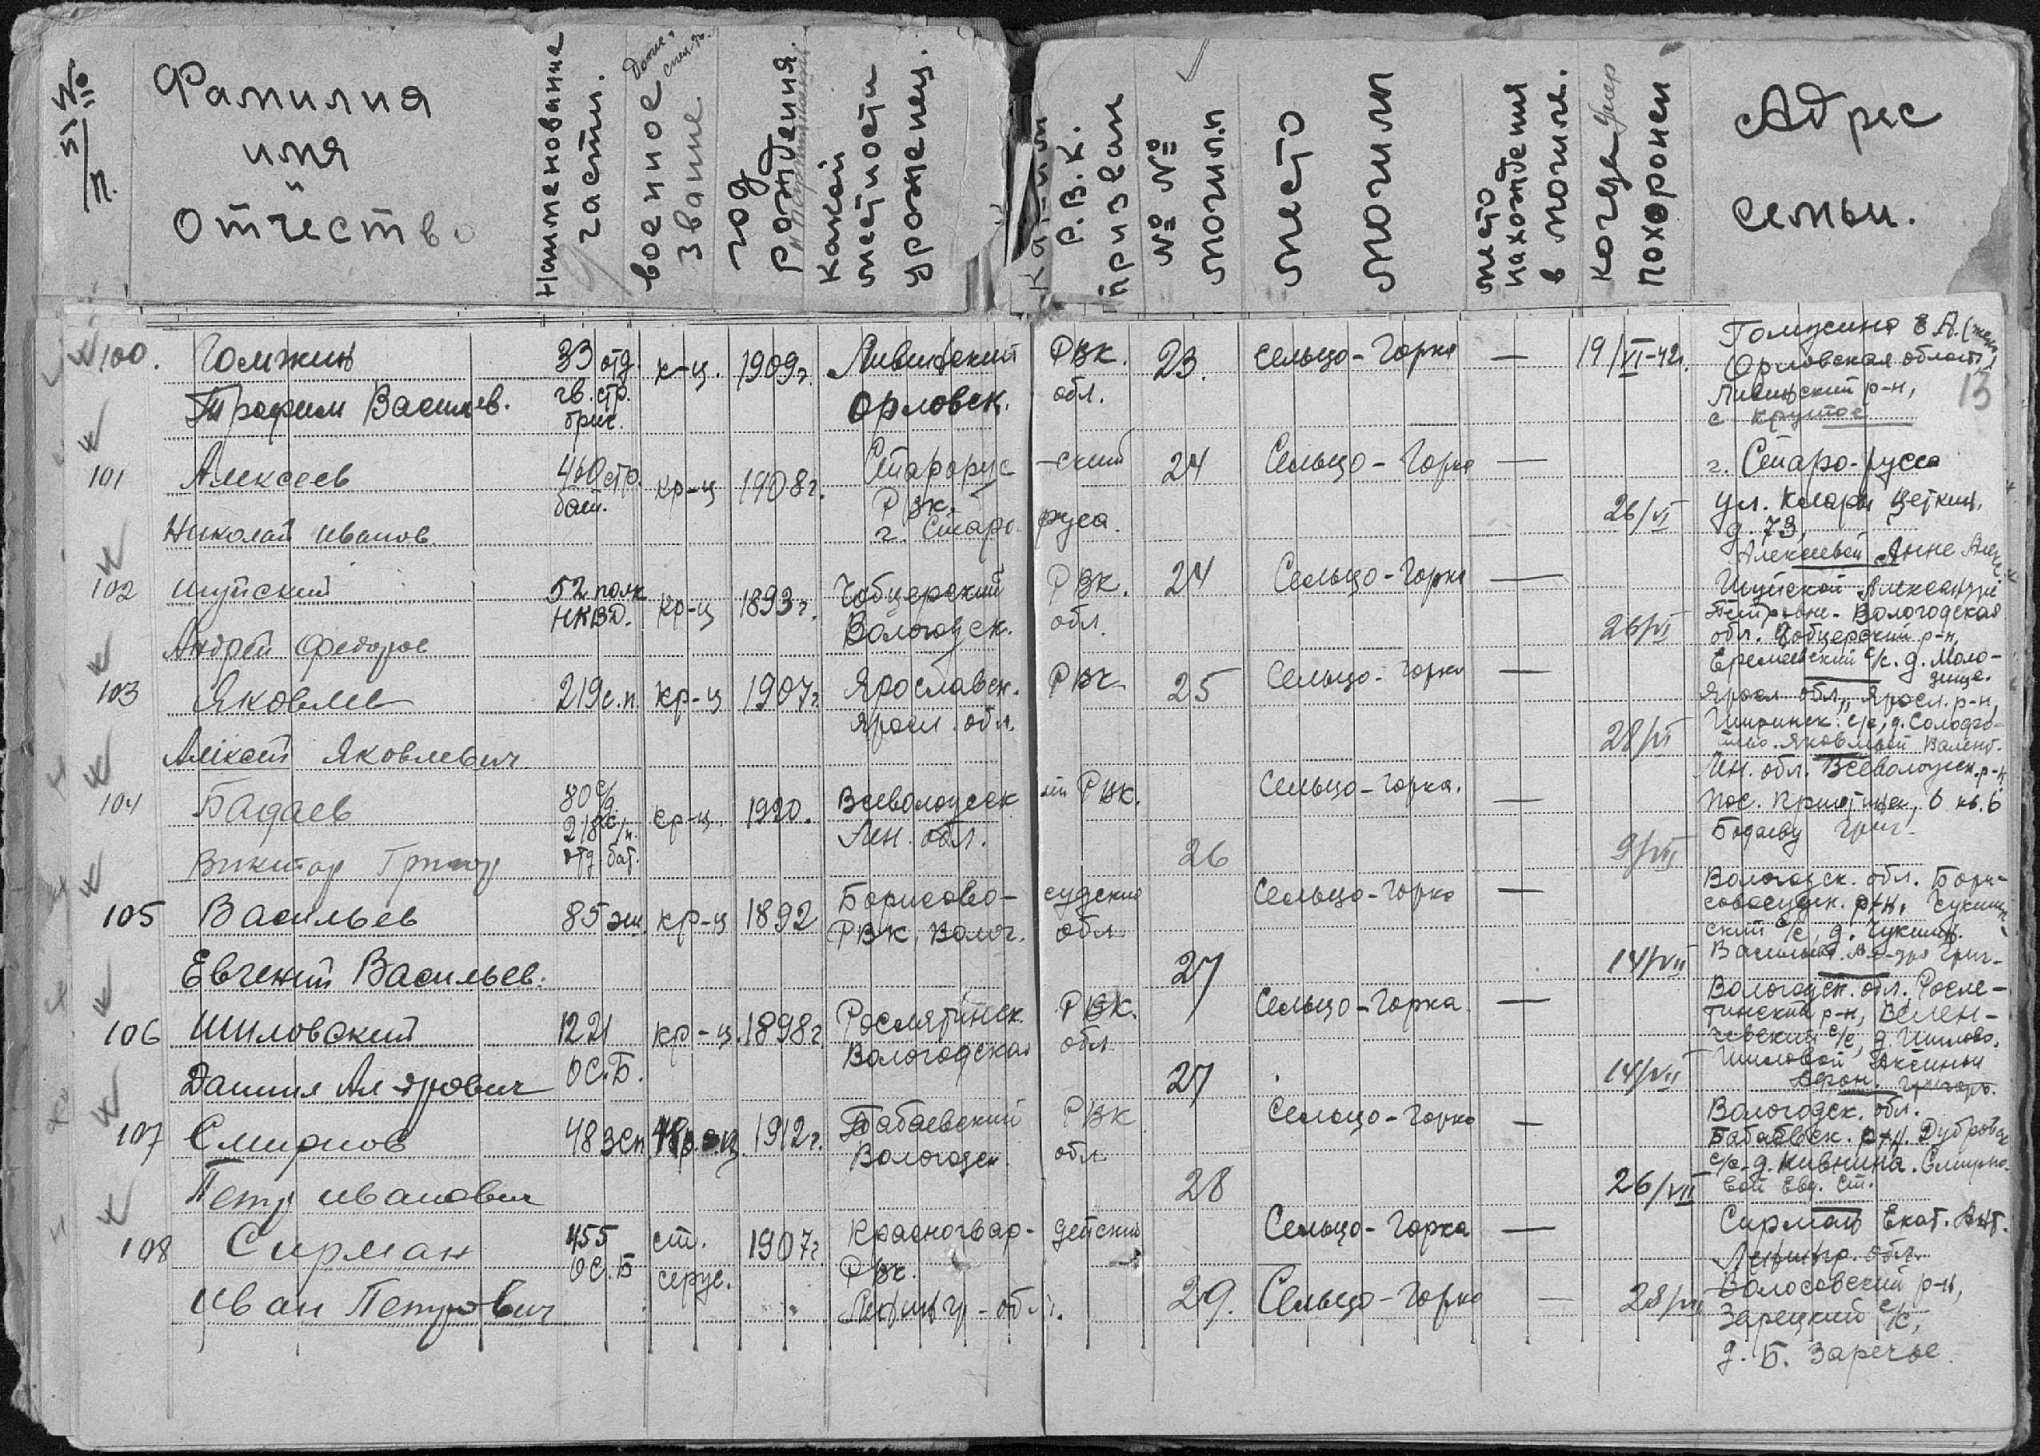 №№ п/п.
Фамилия имя и отчество
Наименование части.
военное звание
год рождения.
какой местности урожен ец.
Р.В.К. призван
№№ могил.п
место могилы
место нахождения в могиле.
когда умер похоронен
Адрес семьи.
13
100. Гомжин 33 отд. к-ц. 1909г. Ливинский РВК. 23. Сельцо-Горка — 19/VI-42г. Орловская область
Трофим Васильев. гв. стр. бриг. Орловск. обл. Ливинский р-н, с Крутое
101 Алексеев 460 стр. кр-ц 1908г. Старорус-ский 24 Сельцо-Горка — г. Старо-русса
Николай Иванов. бат. РВК. г. Старо русса. 26/VI ул. Клары Цеткин, д. 73,
Алексеевой Анне
102 Шуйский 52 полк кр-ц 1893г. РВК. 24 Сельцо-Горка — Шуйской Александре
Андрей Федоров НКВД. Вологодск. обл. 26/VI Петровне. Вологодская
обл. р-н,
Еремеевский с/с. д. Моло-
103 Яковлев 219 с.п. кр-ц 1907г. Ярославск. РВК 25 Сельцо-Горка — Яросл. обл., Яросл. р-н,
Алексей Яковлевич Яросл. обл. 28/VI
Яковлевой Валент.
104 Бадаев 80 с/д. кр-ц 1920. Всеволожск ий РВК. Сельцо-Горка. — Лен. обл. Всеволожск. р-н
Виктор Григор 218 с/п. отд бат. Лен. обл. 26 9/VII пос. 6 кв. 6
Бодаеву Григ.
105 Васильев 85 кр-ц 1892 Борисово-судский Сельцо-Горка — Вологодск. обл. Бори-
Евгений Васильев. РВК, Волог. обл 27 14/VII совосудск. р-н,
ский с/с, д.
106 Шиловский 1221 кр-ц. 1898г. Рослятинск РВК. Сельцо-Горка — Вологодск. обл. Росле-
Даниил Ал-дрович ОС.Б. Вологодская обл 27 14/VII тинский р-н,
с/с, д. Шилово.
Шиловой Аксиньи
107 Смирнов 48 ЗСП 1912г. Бабаевский РВК Сельцо-Горка — Вологодск. обл.
Петр Иванович Вологодск. обл 28 26/VII Бабаевск. р-н.
Смирно-
вой Евд. Ст.
108 Сирман 455 ст. 1907г. Красногвар-дейский Сельцо-Горка — Сирман Екат. Ант.
Иван Петрович ОС.Б серж. РВК. Ленингр-обл. 29. Сельцо-Горка — 28/VII Ленингр. обл.
Волосовский р-н,
Зарецкий с/с,
д. Б. Заречье.